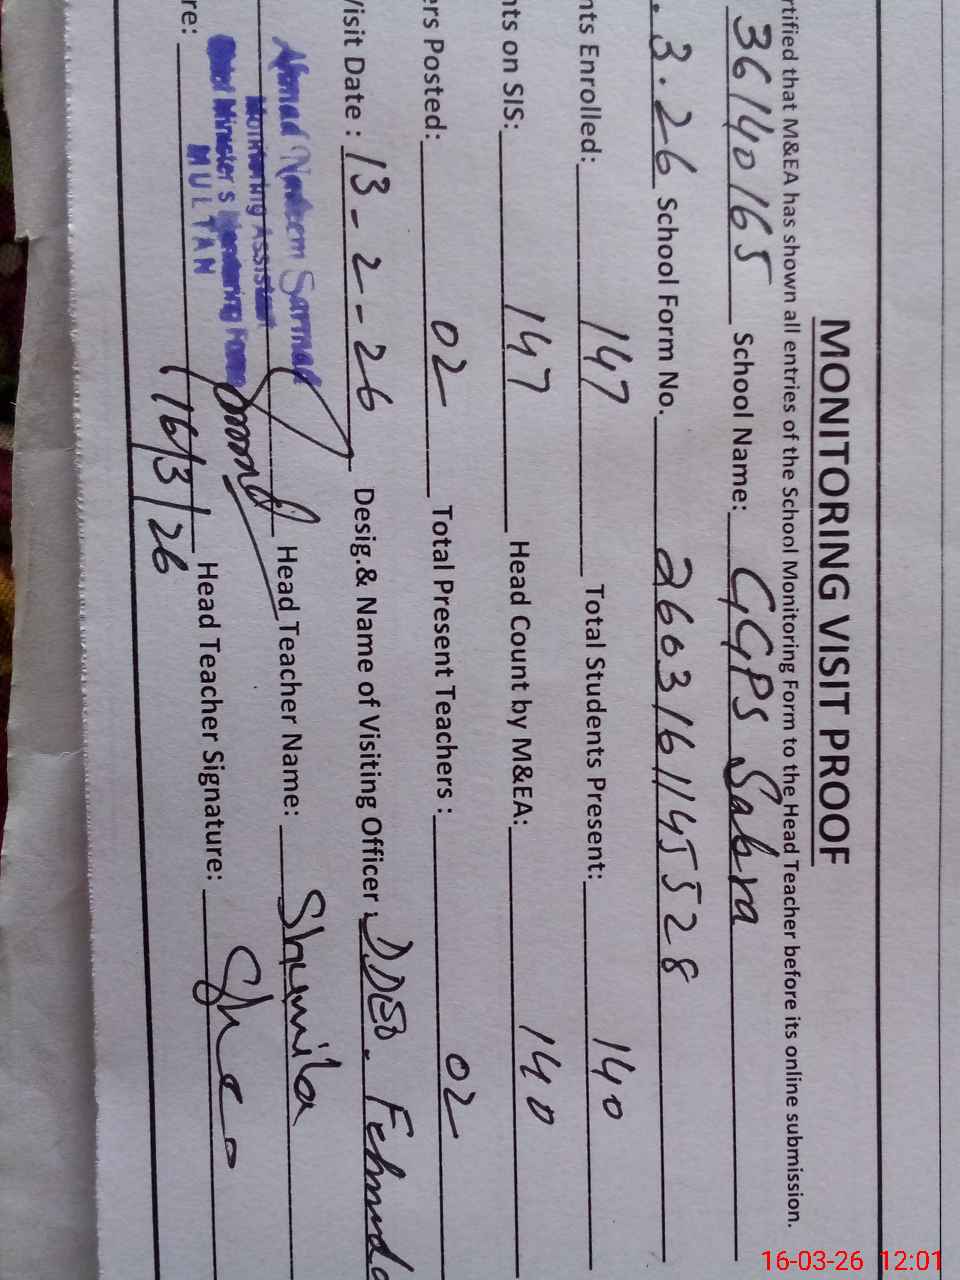 MONITORING VISIT PROOF
rtified that M&EA has shown all entries of the School Monitoring Form to the Head Teacher before its online submission.
36140165 School Name: GGPS Sabra
.3.26 School Form No. 2603161145528
nts Enrolled: 147 Total Students Present: 140
nts on SIS: 147 Head Count by M&EA: 140
ers Posted: 02 Total Present Teachers : 02
Visit Date : 13-2-26 Desig.& Name of Visiting Officer: DDEO. Fehmda
Ahmad Nadeem Sarmad
Monitoring Assistant Head Teacher Name: Shumila
Chief Minister's Monitoring Force
MULTAN
re: Head Teacher Signature:
16/3/26
16-03-26 12:01